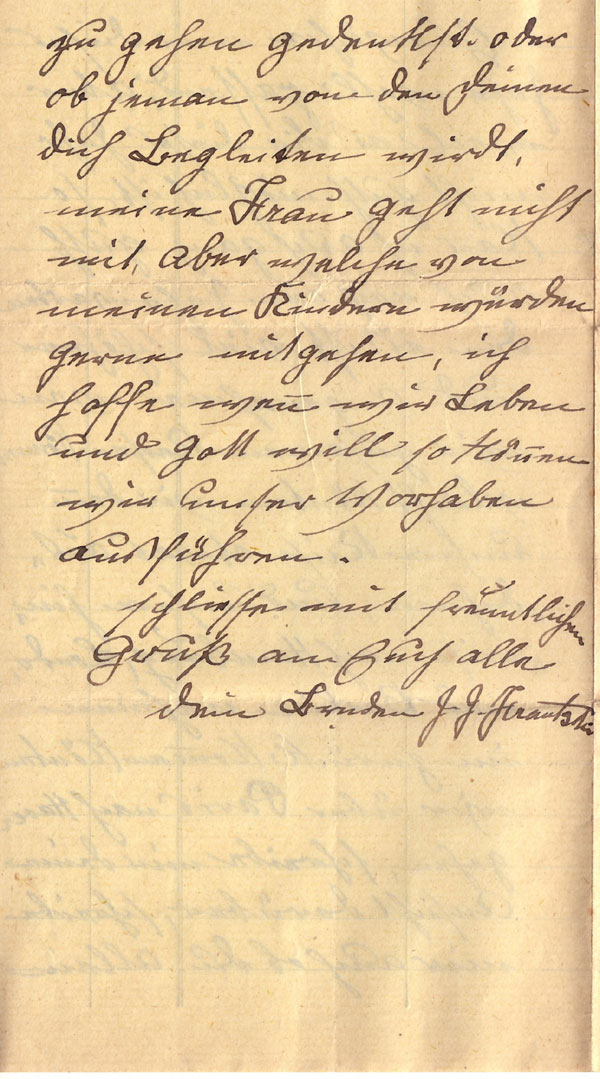 zu gehen gedenkst. oder
ob jeman von den Deinen
dich Begleiten wirdt,
meine Frau geht nicht
mit, Aber welche von
meinen Kindern würden
gerne mitgehen, ich
hoffe wen̅ wir Leben
und Gott will so kön̅en
wir unser Vorhaben
ausführen.
schliesse mit freuntlichen
Gruß an Euch alle
dein Bruder J. J.